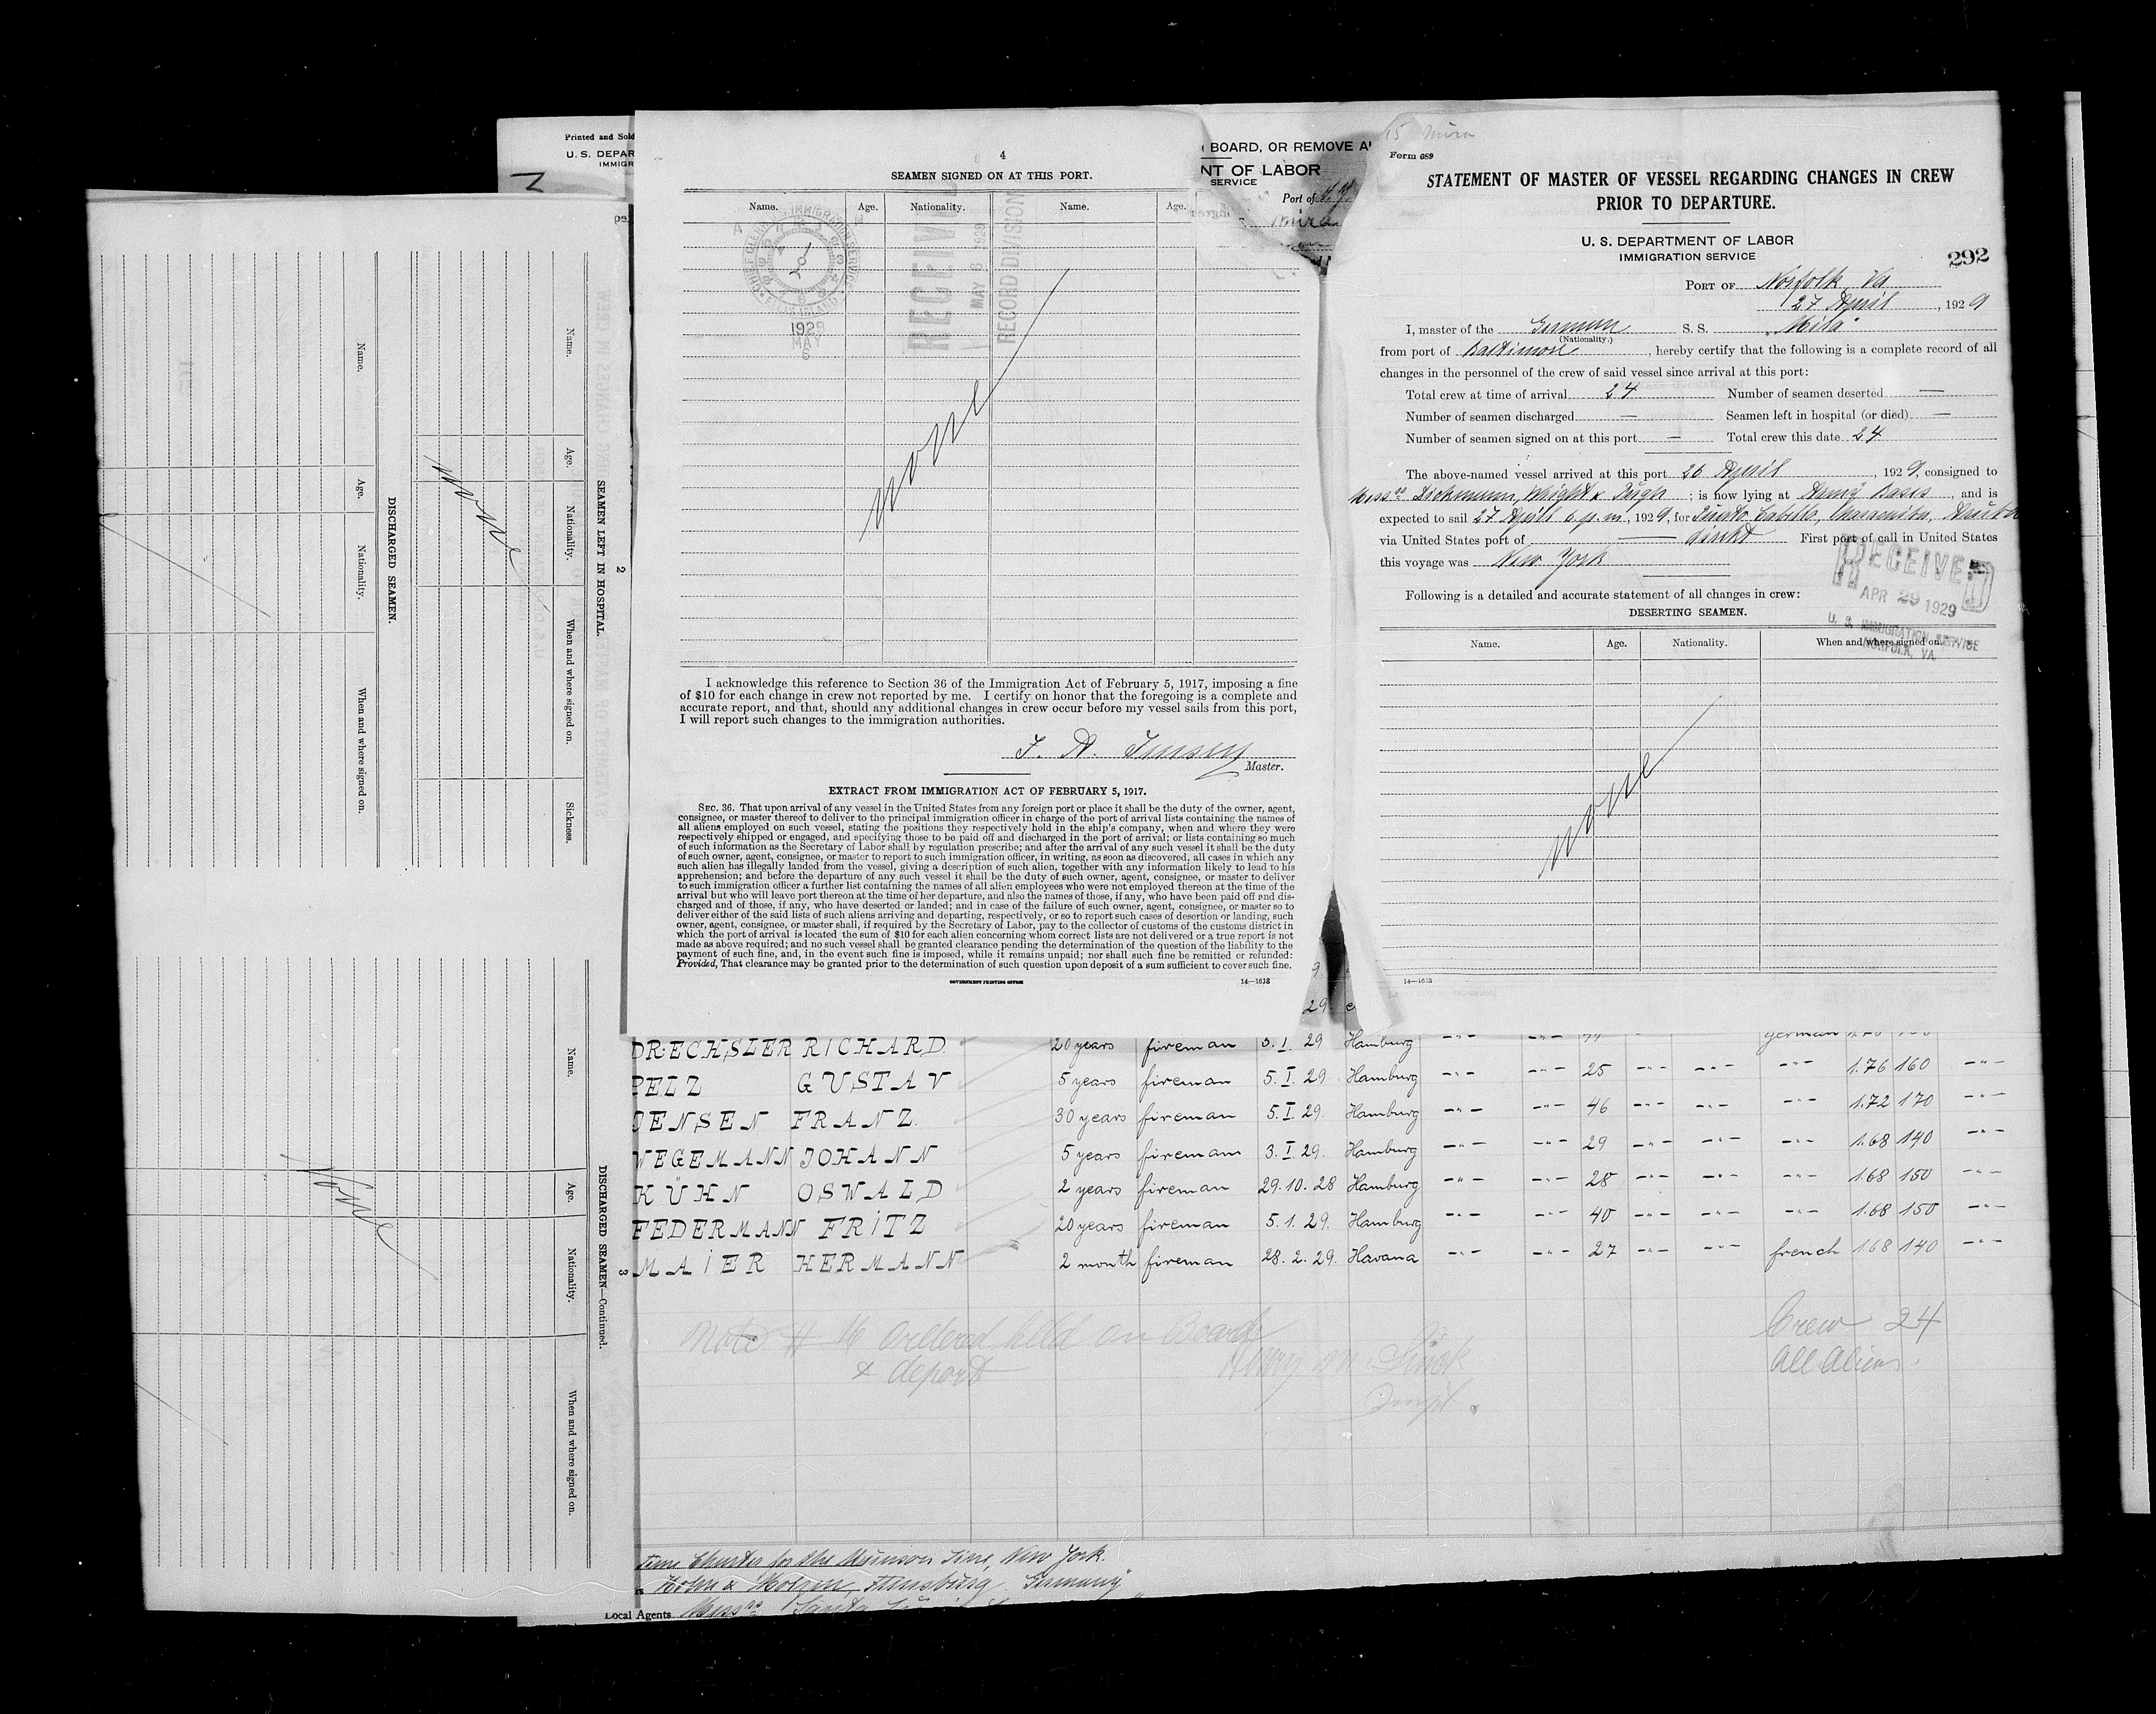 Printed and Sold
U. S. DEPAR
IMMIGR
4
SEAMEN SIGNED ON AT THIS PORT.
Name. Age. Nationality. Name. Age.
CHIEF CLERK IMMIGRATION SERVICE
ELLIS ISLAND
1929
MAY
6
RECEIVED
MAY 6 1929
RECORD DIVISION
None
I acknowledge this reference to Section 36 of the Immigration Act of February 5, 1917, imposing a fine
of $10 for each change in crew not reported by me. I certify on honor that the foregoing is a complete and
accurate report, and that, should any additional changes in crew occur before my vessel sails from this port,
I will report such changes to the immigration authorities.
Master.
EXTRACT FROM IMMIGRATION ACT OF FEBRUARY 5, 1917.
SEC. 36. That upon arrival of any vessel in the United States from any foreign port or place it shall be the duty of the owner, agent,
consignee, or master thereof to deliver to the principal immigration officer in charge of the port of arrival lists containing the names of
all aliens employed on such vessel, stating the positions they respectively hold in the ship's company, when and where they were
respectively shipped or engaged, and specifying those to be paid off and discharged in the port of arrival; or lists containing so much
of such information as the Secretary of Labor shall by regulation prescribe; and after the arrival of any such vessel it shall be the duty
of such owner, agent, consignee, or master to report to such immigration officer, in writing, as soon as discovered, all cases in which any
such alien has illegally landed from the vessel, giving a description of such alien, together with any information likely to lead to his
apprehension; and before the departure of any such vessel it shall be the duty of such owner, agent, consignee, or master to deliver
to such immigration officer a further list containing the names of all alien employees who were not employed thereon at the time of the
arrival but who will leave port thereon at the time of her departure, and also the names of those, if any, who have been paid off and dis-
charged and of those, if any, who have deserted or landed; and in case of the failure of such owner, agent, consignee, or master so to
deliver either of the said lists of such aliens arriving and departing, respectively, or so to report such cases of desertion or landing, such
owner, agent, consignee, or master shall, if required by the Secretary of Labor, pay to the collector of customs of the customs district in
which the port of arrival is located the sum of $10 for each alien concerning whom correct lists are not delivered or a true report is not
made as above required; and no such vessel shall be granted clearance pending the determination of the question of the liability to the
payment of such fine, and, in the event such fine is imposed, while it remains unpaid; nor shall such fine be remitted or refunded:
Provided, That clearance may be granted prior to the determination of such question upon deposit of a sum sufficient to cover such fine.
GOVERNMENT PRINTING OFFICE 14—1613
BOARD, OR REMOVE
NT OF LABOR
SERVICE
Port of N.Y.
Mira
15 Mira
Form 689
STATEMENT OF MASTER OF VESSEL REGARDING CHANGES IN CREW
PRIOR TO DEPARTURE.
U. S. DEPARTMENT OF LABOR
IMMIGRATION SERVICE
292
PORT OF Norfolk, Va
27 April, 1929
I, master of the German S. S. "Mira"
(Nationality.)
from port of Baltimore, hereby certify that the following is a complete record of all
changes in the personnel of the crew of said vessel since arrival at this port:
Total crew at time of arrival 24 Number of seamen deserted —
Number of seamen discharged — Seamen left in hospital (or died) —
Number of seamen signed on at this port — Total crew this date 24
The above-named vessel arrived at this port 26 April, 1929, consigned to
Messrs Dichmann, Wright & Pugh; is now lying at Army Base, and is
expected to sail 27 April 6 p.m., 1929, for Puerto Cabello, Maracaibo,
via United States port of — direkt First port of call in United States
this voyage was New York
RECEIVED
APR 29 1929
U. S. IMMIGRATION SERVICE
NORFOLK, VA.
Following is a detailed and accurate statement of all changes in crew:
DESERTING SEAMEN.
Name. Age. Nationality. When and where signed on.
None
14—1613
2
SEAMEN LEFT IN HOSPITAL.
Name. Age. Nationality. When and where signed on. Sickness.
None
DISCHARGED SEAMEN.
Name. Age. Nationality. When and where signed on.
3
DISCHARGED SEAMEN—Continued.
Name. Age. Nationality. When and where signed on.
None
DRECHSLER RICHARD 20 years fireman 5. I. 29 Hamburg -"- -"- 44 german
PELZ GUSTAV 5 years fireman 5. I. 29. Hamburg -"- -"- 25 -"- -"- -"- 1.76 160 -"-
JENSEN FRANZ. 30 years fireman 5. I. 29. Hamburg -"- -"- 46 -"- -"- -"- 1.72 170 -"-
WEGEMANN JOHANN 5 years fireman 3. I. 29. Hamburg -"- -"- 29 -"- -"- -"- 1.68 140 -"-
KÜHN OSWALD 2 years fireman 29.10.28 Hamburg -"- -"- 28 -"- -"- -"- 1.68 150 -"-
FEDERMANN FRITZ 20 years fireman 5. 1. 29. Hamburg -"- -"- 40 -"- -"- -"- 1.68 150 -"-
MAIER HERMANN 2 month fireman 28. 2. 29. Havana -"- -"- 27 -"- -"- french 1.68 140 -"-
Note # 16 Ordered held on Board
& deport
Inspt.
Crew 24
All Aliens.
Time Charter to the Munson Line, New York.
Flensburg Germany
Local Agents Messrs